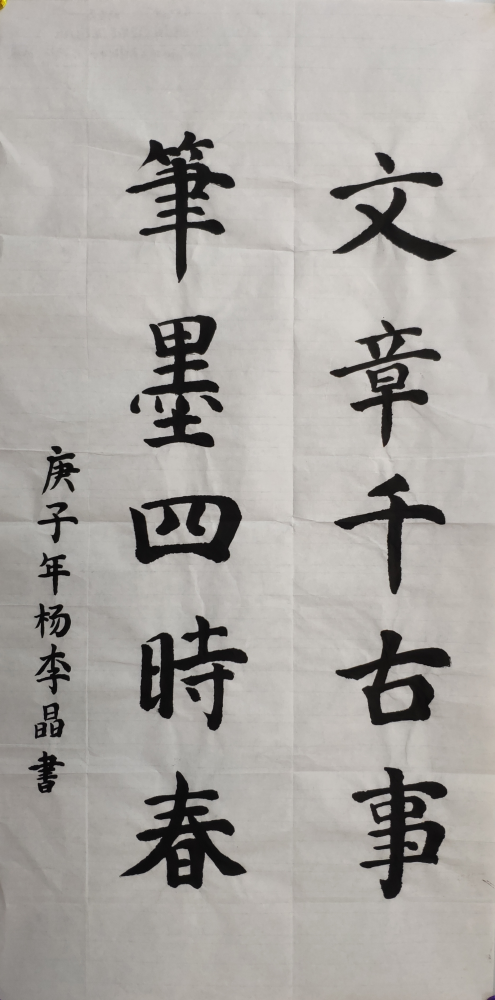 文章千古事
筆墨四時春
庚子年杨李晶書